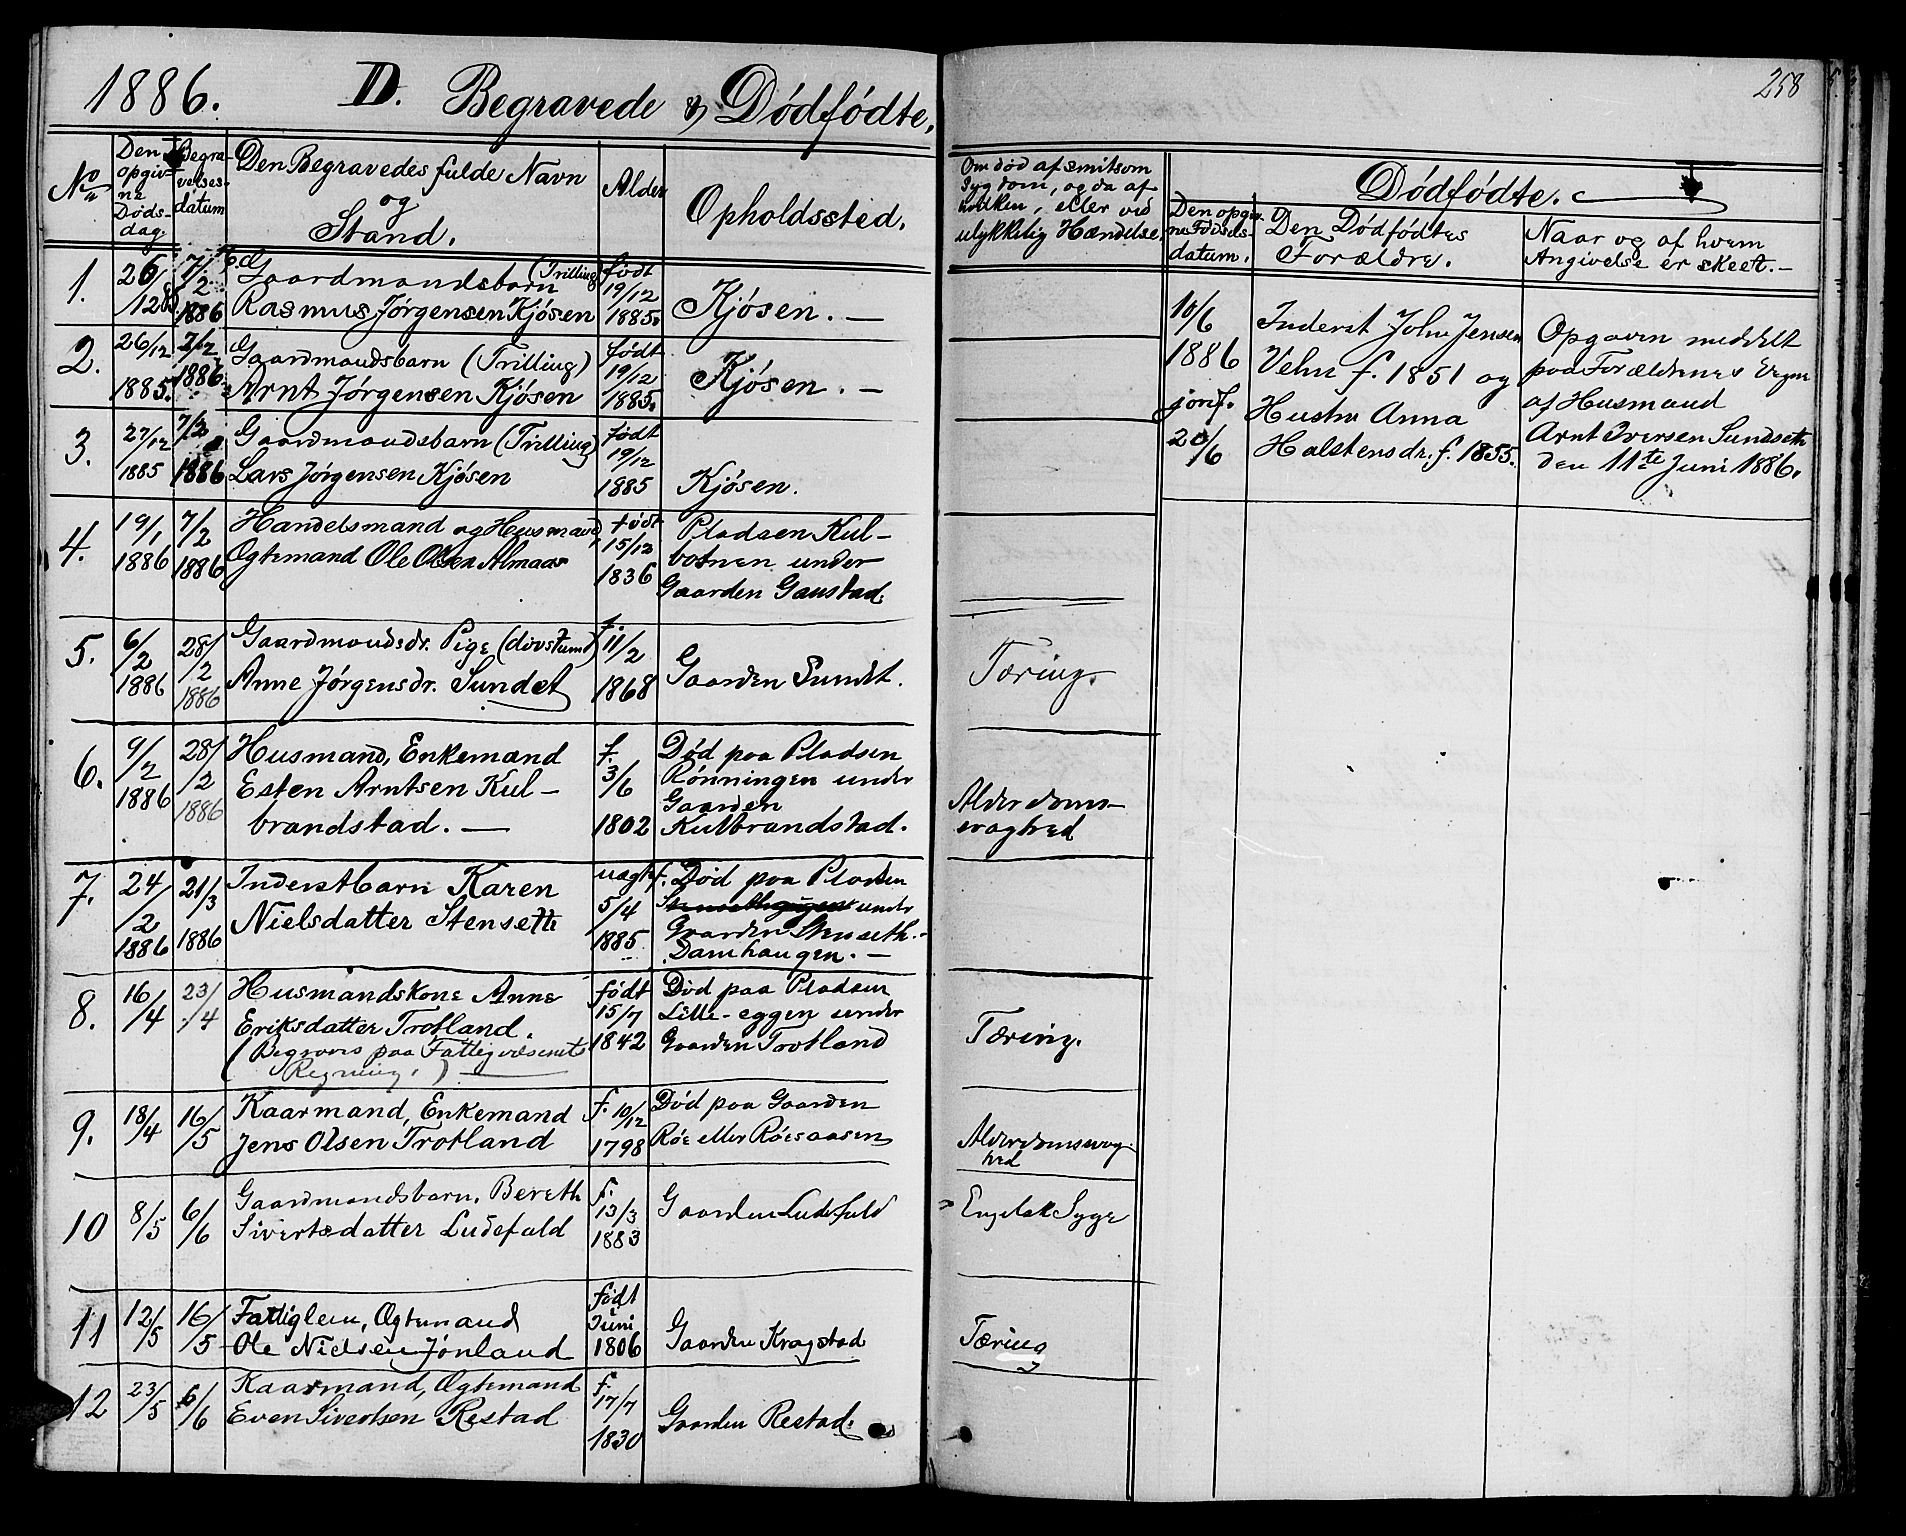 1886. D. Begravede & Dødfødte.
258
No
Den opgivne Dødsdag.
Begravelsesdatum
Den Begravedes fulde Navn og Stand.
Alder
Opholdssted.
Om død af smitsom
Sygdom, og da af
hvilken, eller ved
ulykkelig Hændelse.
Dødfødte.
Den opgivne Fødselsdatum.
Den Dødfødtes Forældre.
Naar og af hvem
Angivelse er skeet.
1. 26/12 7/2 1886
Gaardmandsbarn (Trilling)
Rasmus Jørgensen Kjøsen
født 19/12 1885.
Kjøsen.
2. 26/12 1885. 7/2 1886
Gaardmandsbarn (Trilling)
Arnt Jørgensen Kjøsen
født 19/12 1885.
Kjøsen.
3. 27/12 1885 7/2 1886
Gaardmandsbarn (Trilling)
Lars Jørgensen Kjøsen
født 19/12 1885
Kjøsen.
4. 19/1 1886 7/2 1886
Handelsmand og Husmand,
Ægtemand Ole Olsen Almaas
født 15/12 1836
Pladsen Kul-
botnen under
Gaarden Gaustad.
5. 6/2 1886 28/2 1886
Gaardmandsdr. Pige (døvstum)
Anne Jørgensdr. Sundet
f. 11/2 1868
Gaarden Sundt.
Tæring.
6. 9/2 1886 28/2 1886
Husmand, Enkemand
Esten Arntsen Kul-
brandstad.
f. 3/6 1802
Død paa Pladsen
Rønningen under
Gaarden
Kulbrandstad.
Alderdoms-
svaghed
7. 24/2 1886 21/3 1886
Inderstbarn Karen
Nielsdatter Stenseth
uægte f. 5/4 1885
Død paa Pladsen
under
Gaarden Stenseth.
Damhaugen.
8. 16/4 23/4
Husmandskone Anne
Eriksdatter Trotland.
(Begraves paa Fattigvæsenets
Regning.)
født 15/7 1842
Død paa Pladsen
Lille-eggen under
Gaarden Trotland
Tæring.
9. 18/4 16/5
Kaarmand, Enkemand
Jens Olsen Trotland
f. 10/12 1798
Død paa Gaarden
Røe eller Røesaasen
Alderdomssvag-
hed
10 8/5 6/6
Gaardmandsbarn, Bereth
Sivertsdatter Ludefald
f. 13/3 1883
Gaarden Ludefald
Engelsk Syge
11 12/5 16/5
Fattiglem, Ægtemand
Ole Nielsen Jønland
født Juni 1806
Gaarden Kragstad
Tæring
12 23/5 6/6
Kaarmand, Ægtemand
Even Sivertsen Restad
f. 17/7 1830
Gaarden Restad.
10/6
1886
jordf.
20/6
Inderst John Jensen
Vehn f. 1851 og
Hustru Anna
Halstensdr. f. 1855.
Opgaven meddelt
paa Forældrenes Vegne
af Husmand
Arnt Iversen Sundseth
den 11te Juni 1886.